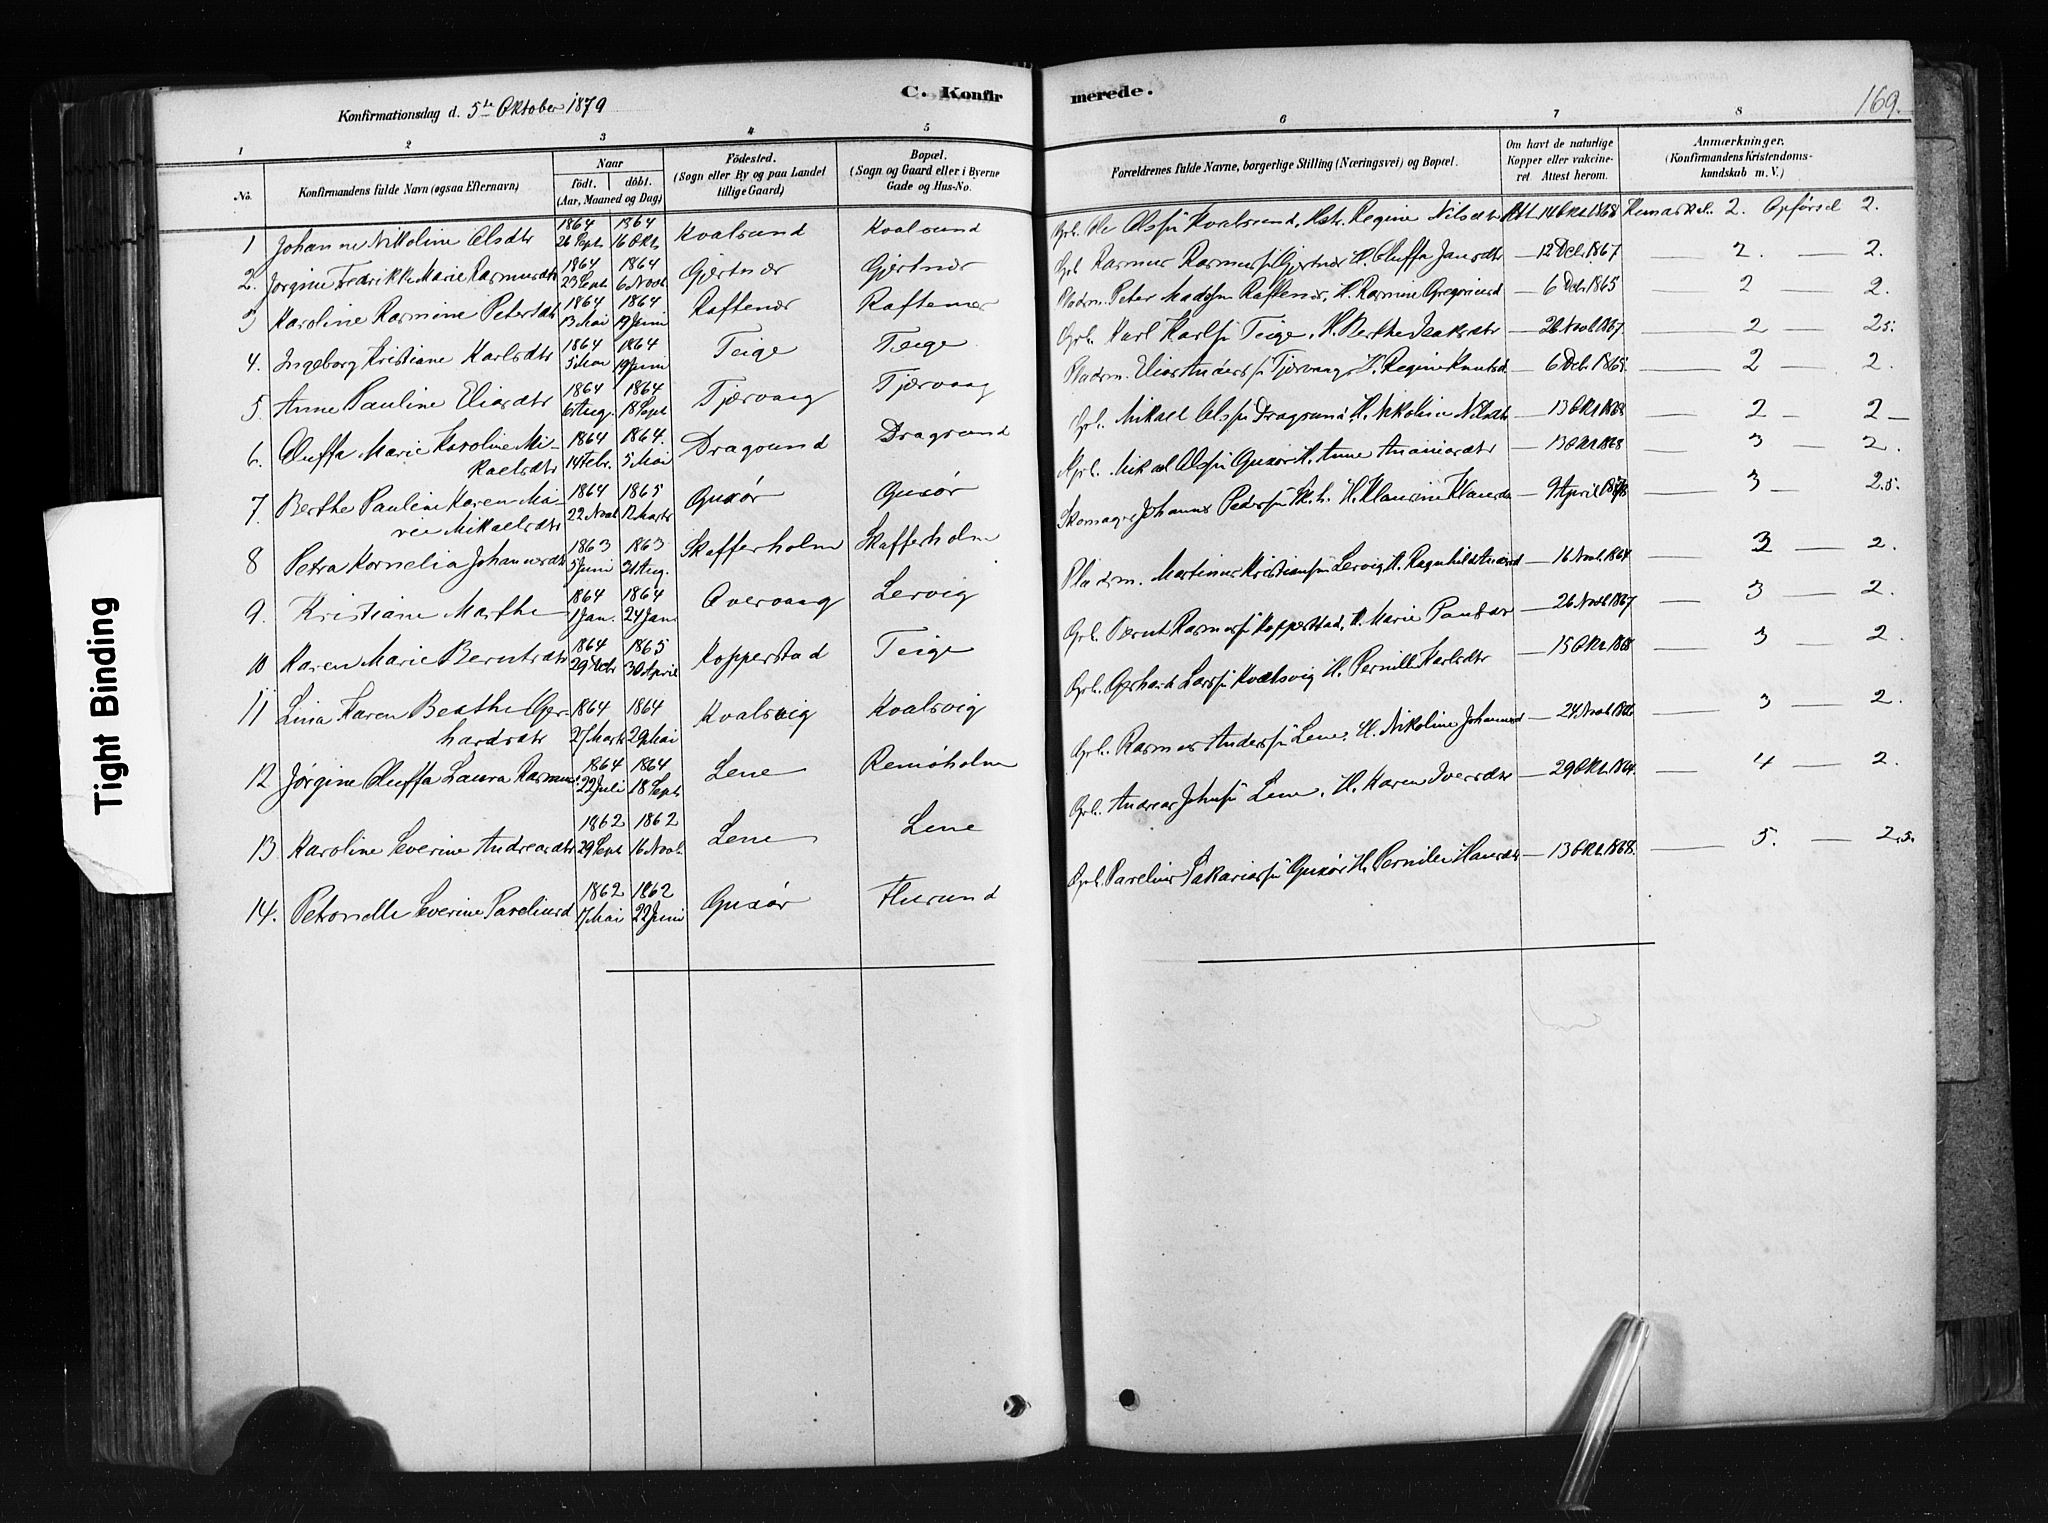 169.
Konfirmationsdag d. 5te Oktober 1879
C. Konfir
merede.
1 2 3 4 5 6 7 8
No.
Konfirmandens fulde Navn (ogsaa Efternavn)
Naar
födt. döbt.
(Aar, Maaned og Dag)
Födested.
(Sogn eller By og paa Landet
tillige Gaard)
Bopæl.
(Sogn og Gaard eller i Byerne
Gade og Hus-No.
Forældrenes fulde Navne, borgerlige Stilling (Næringsvei) og Bopæl.
Om havt de naturlige
Kopper eller vakcine-
ret Attest herom.
Anmærkninger.
(Konfirmandens Kristendoms-
kundskab m. V.)
1 Johanne Nikoline Olsdtr 1864 26 Sept. 1864 16 Okt. Kvalsund Kvalsund Grb. Ole Olss Kvalsund, Hstr. Regine Nilsdtr Att. 14 Okt 1868 Kundskab. 2. Opførsel 2.
2. Jørgine Fredrikke Marie Rasmusdtr 1864 23 Sept 1864 6 Novb Gjertnær Gjertnær Grb Rasmus Rasmuss Gjertnær H. Oluffa Jansdtr — 12 Dcb. 1867 — 2. — 2.
3 Karoline Rasmine Petersdtr 1864 13 Mai 1864 19 Juni Raftenær Raftenær Pladsm. Peter Madss Raftenær, H. Rasmine Gregoriusd — 6 Dcb. 1865 — 2 — 2.
4. Ingeborg Kristiane Karlsdtr 1864 5 Mai 1864 19 Juni Teige Teige Grb. Karl Karls Teige, H. Berthe Isaksdtr — 26 Novb 1867 — 2 — 2 5.
5. Anne Pauline Eliasdtr 1864 6 Aug. 1864 18 Sept Tjærvaag Tjærvaag Pladsm. Elias Anders Tjørvaag, H. Regine Knutsd. — 6 Dcb. 1865. — 2 — 2.
6. Oluffa Marie Karoline Mi-
kaelsdtr 1864 14 Febr. 1864. 5 Mai Dragsund Dragsund Grb. Mikael Olss Dragsund H. Nikoline Nilsdtr — 13 Okt 1868 — 2 — 2 —
7. Berthe Pauline Karen Ma-
rie Mikaelsdtr 1864 22 Novb 1865 12 Marts Gusør Gusør Grb. Mikael Olss Gusør H. Anne Ananiasdtr — 13 Okt 1868 — 3 — 2.
8 Petra Kornelia Johannesdtr 1863 5 Juni 1863 31 Aug. Skafferholm Skafferholm Skomager Johannes Peders Sk.h. H. Klausine Klausd — 9 April 1878 — 3 — 2.5.
9. Kristiane Marthe — 1864 1 Jan. 1864 24 Jan. Overvaag Lervig Pladsm. Martinus Kristians Lervig H. Ragnhild — 16 Novb. 1864 — 3 — 2.
10 Karen Marie Berntsdtr 1864 29 1865 30 April Kopperstad Teige Grb. Bernt Rasmuss Kopperstad, H. Marie — 26 Novb 1867 — 3 — 2.
11 Lina Karen Berthe Ger-
hardsdtr 1864 27 Marts 1864 29 Mai Kvalsvig Kvalsvig Grb. Gerhard Larss Kvalsvig H. Pernille Karlsdtr — 15 Okt. 1868 — 3 — 2.
12 Jørgine Oluffa Laura Rasmus. 1864 22 Juli 1864 18 Sept Lene Remøholm Grb. Rasmus Anderss Lene, H. Nikoline Johannesd — 24 Novb 1866 — 3 — 2.
13 Karoline Severine Andreasdtr 1862 29 Sept 1862 16 Novb. Lene Lene Grb. Andreas Johns Lene, H. Karen Iversdtr — 29 Okt. 1864. — 4 — 2.
14. Petonelle Severine Paveliusd 1862 17 Mai 1862 22 Juni Gusør Flusund Grb. Pavelius Sakariass Gusør H. Pernille Hansdtr — 13 Okt. 1868. — 5. — 2.5.
Tight Binding